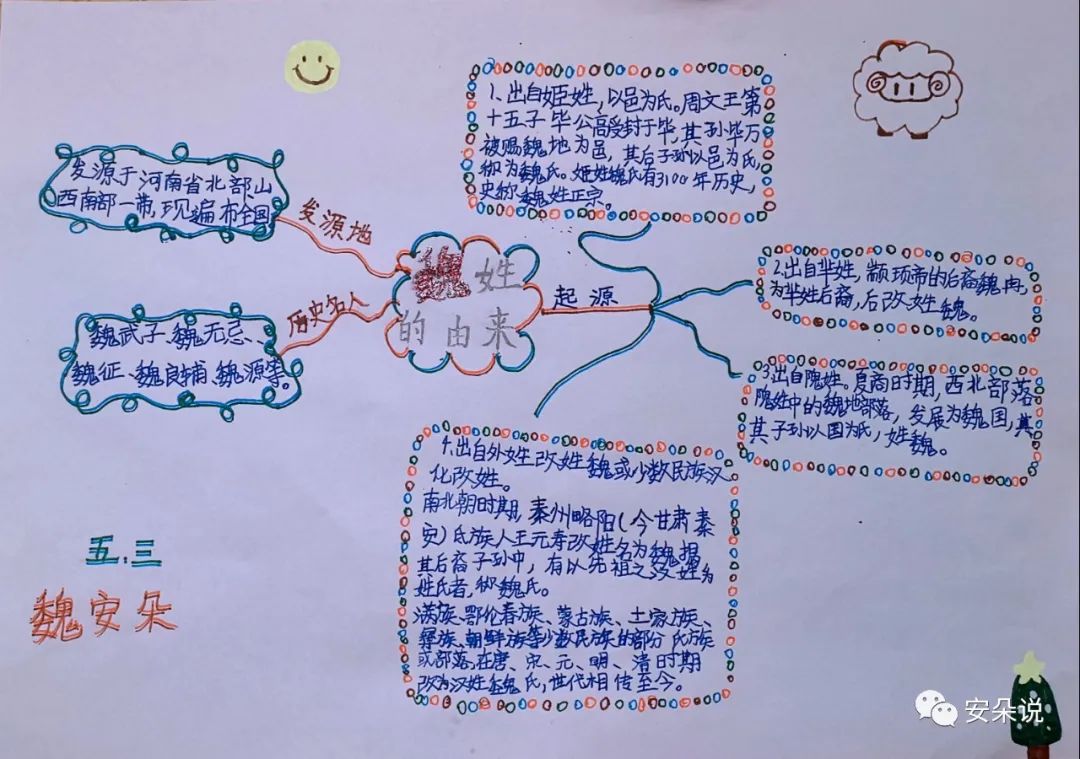 魏姓
的由来
发源地
发源于河南省北部山
西南部一带,现遍布全国
历史名人
魏武子、魏无忌、
魏征、魏良辅、魏源等。
起源
1、出自姬姓,以邑为氏。周文王第
十五子毕公高受封于毕,其孙毕万
被赐魏地为邑,其后子孙以邑为氏,
称为魏氏。姬姓魏氏有3100年历史,
史称魏姓正宗。
2.出自芈姓,颛顼帝的后裔魏冉,
为芈姓后裔,后改姓魏。
3.出自隗姓。夏商时期,西北部落
隗姓中的魏地部落,发展为魏国,其
其子孙以国为氏,姓魏。
4.出自外姓改姓魏或少数民族汉
化改姓。
南北朝时期,秦州略阳(今甘肃秦
安)氐族人王元寿改姓名为魏揭
其后裔子孙中,有以先祖之汉姓为
姓氏者,称魏氏。
满族、鄂伦春族、蒙古族、土家族、
彝族、朝鲜族等少数民族的部分氏族
或部落,在唐、宋、元、明、清时期
改为汉姓魏氏,世代相传至今。
五.三
魏安朵
安朵说